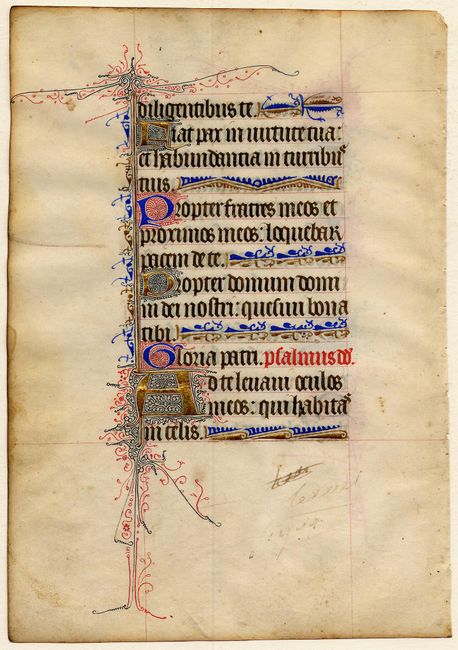 diligentibus te.
Fiat pax in uirtute tua:
et habundancia in turribus
tuis.
Propter fratres meos et
proximos meos: loquebar
pacem de te.
Propter domum domi
ni dei nostri: quesiui bona
tibi.
Gloria patri. psalmus dd.
Ad te leuaui oculos
meos: qui habitas
in celis.